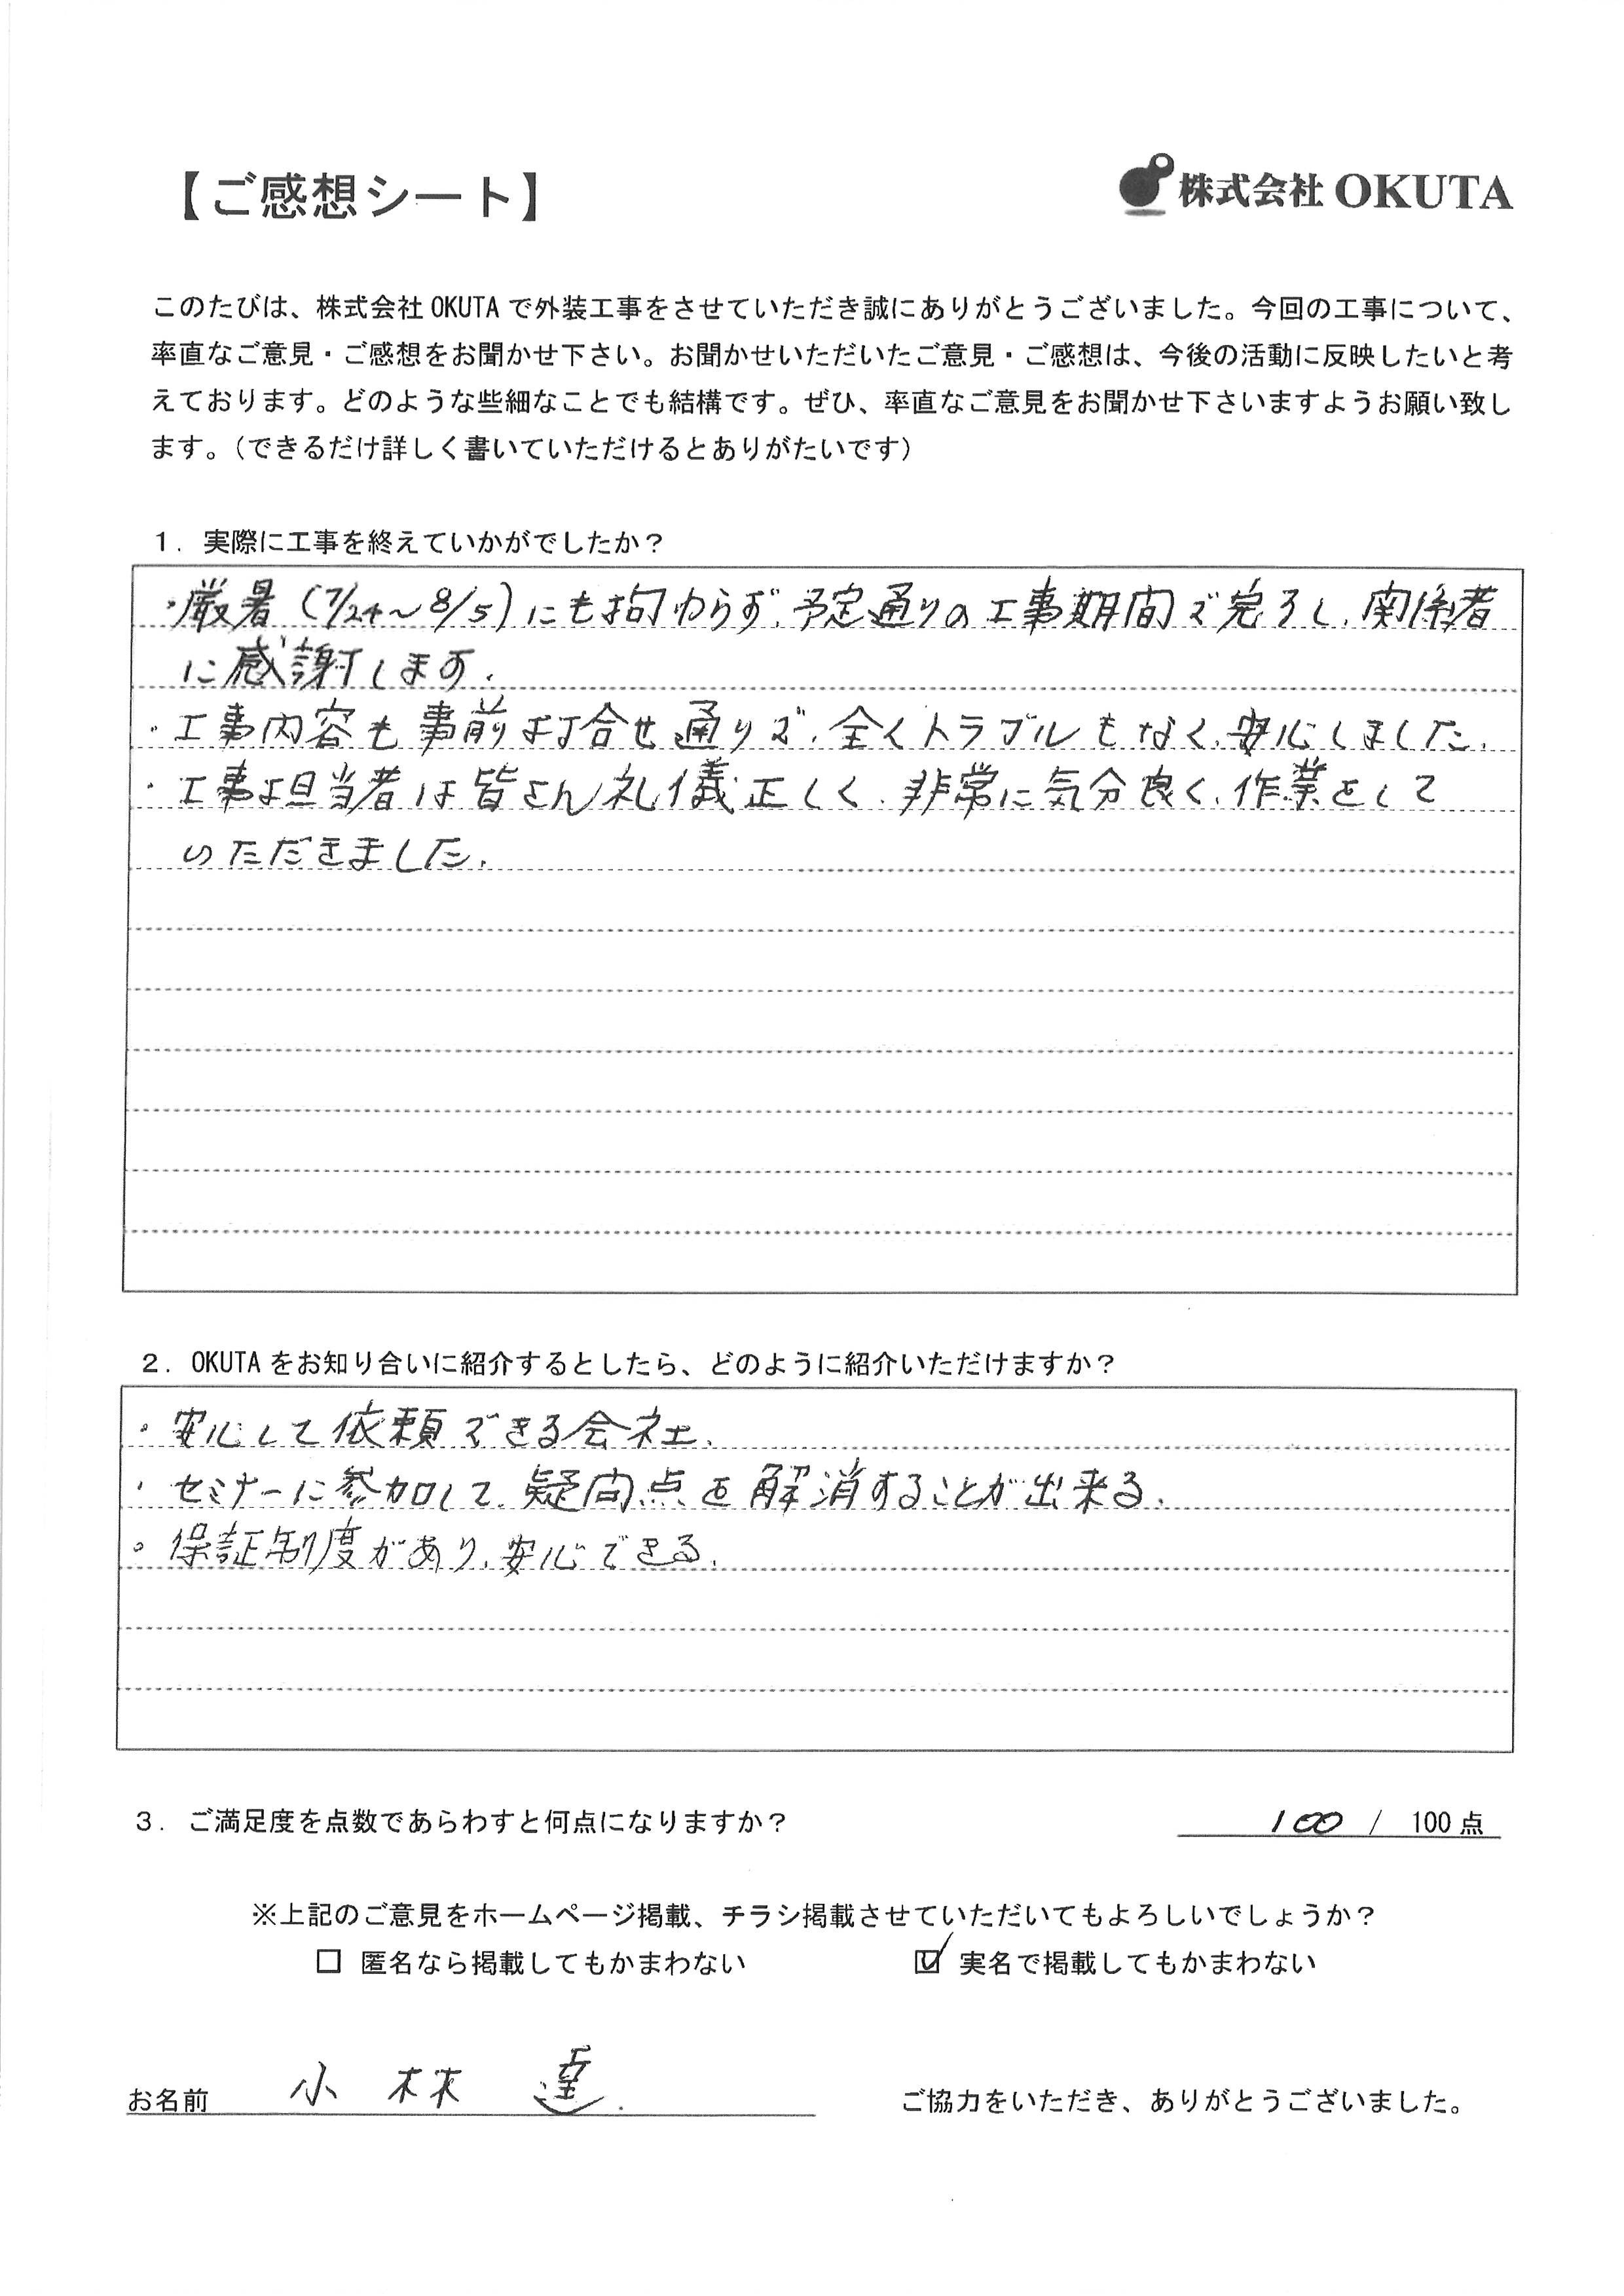 【ご感想シート】
株式会社 OKUTA
このたびは、株式会社 OKUTA で外装工事をさせていただき誠にありがとうございました。今回の工事について、
率直なご意見・ご感想をお聞かせ下さい。お聞かせいただいたご意見・ご感想は、今後の活動に反映したいと考
えております。どのような些細なことでも結構です。ぜひ、率直なご意見をお聞かせ下さいますようお願い致し
ます。（できるだけ詳しく書いていただけるとありがたいです）
１．実際に工事を終えていかがでしたか？
・厳暑（7/24～8/5）にも拘わらず、予定通りの工事期間で完了し、関係者
に感謝します。
・工事内容も事前打合せ通りで、全くトラブルもなく、安心しました。
・工事担当者は皆さん礼儀正しく、非常に気分良く、作業をして
いただきました。
２．OKUTA をお知り合いに紹介するとしたら、どのように紹介いただけますか？
・安心して依頼できる会社。
・セミナーに参加して、疑問点を解消することが出来る。
・保証制度があり、安心できる。
３．ご満足度を点数であらわすと何点になりますか？ 100 / 100 点
※上記のご意見をホームページ掲載、チラシ掲載させていただいてもよろしいでしょうか？
□ 匿名なら掲載してもかまわない ☑ 実名で掲載してもかまわない
お名前 小林 達 ご協力をいただき、ありがとうございました。